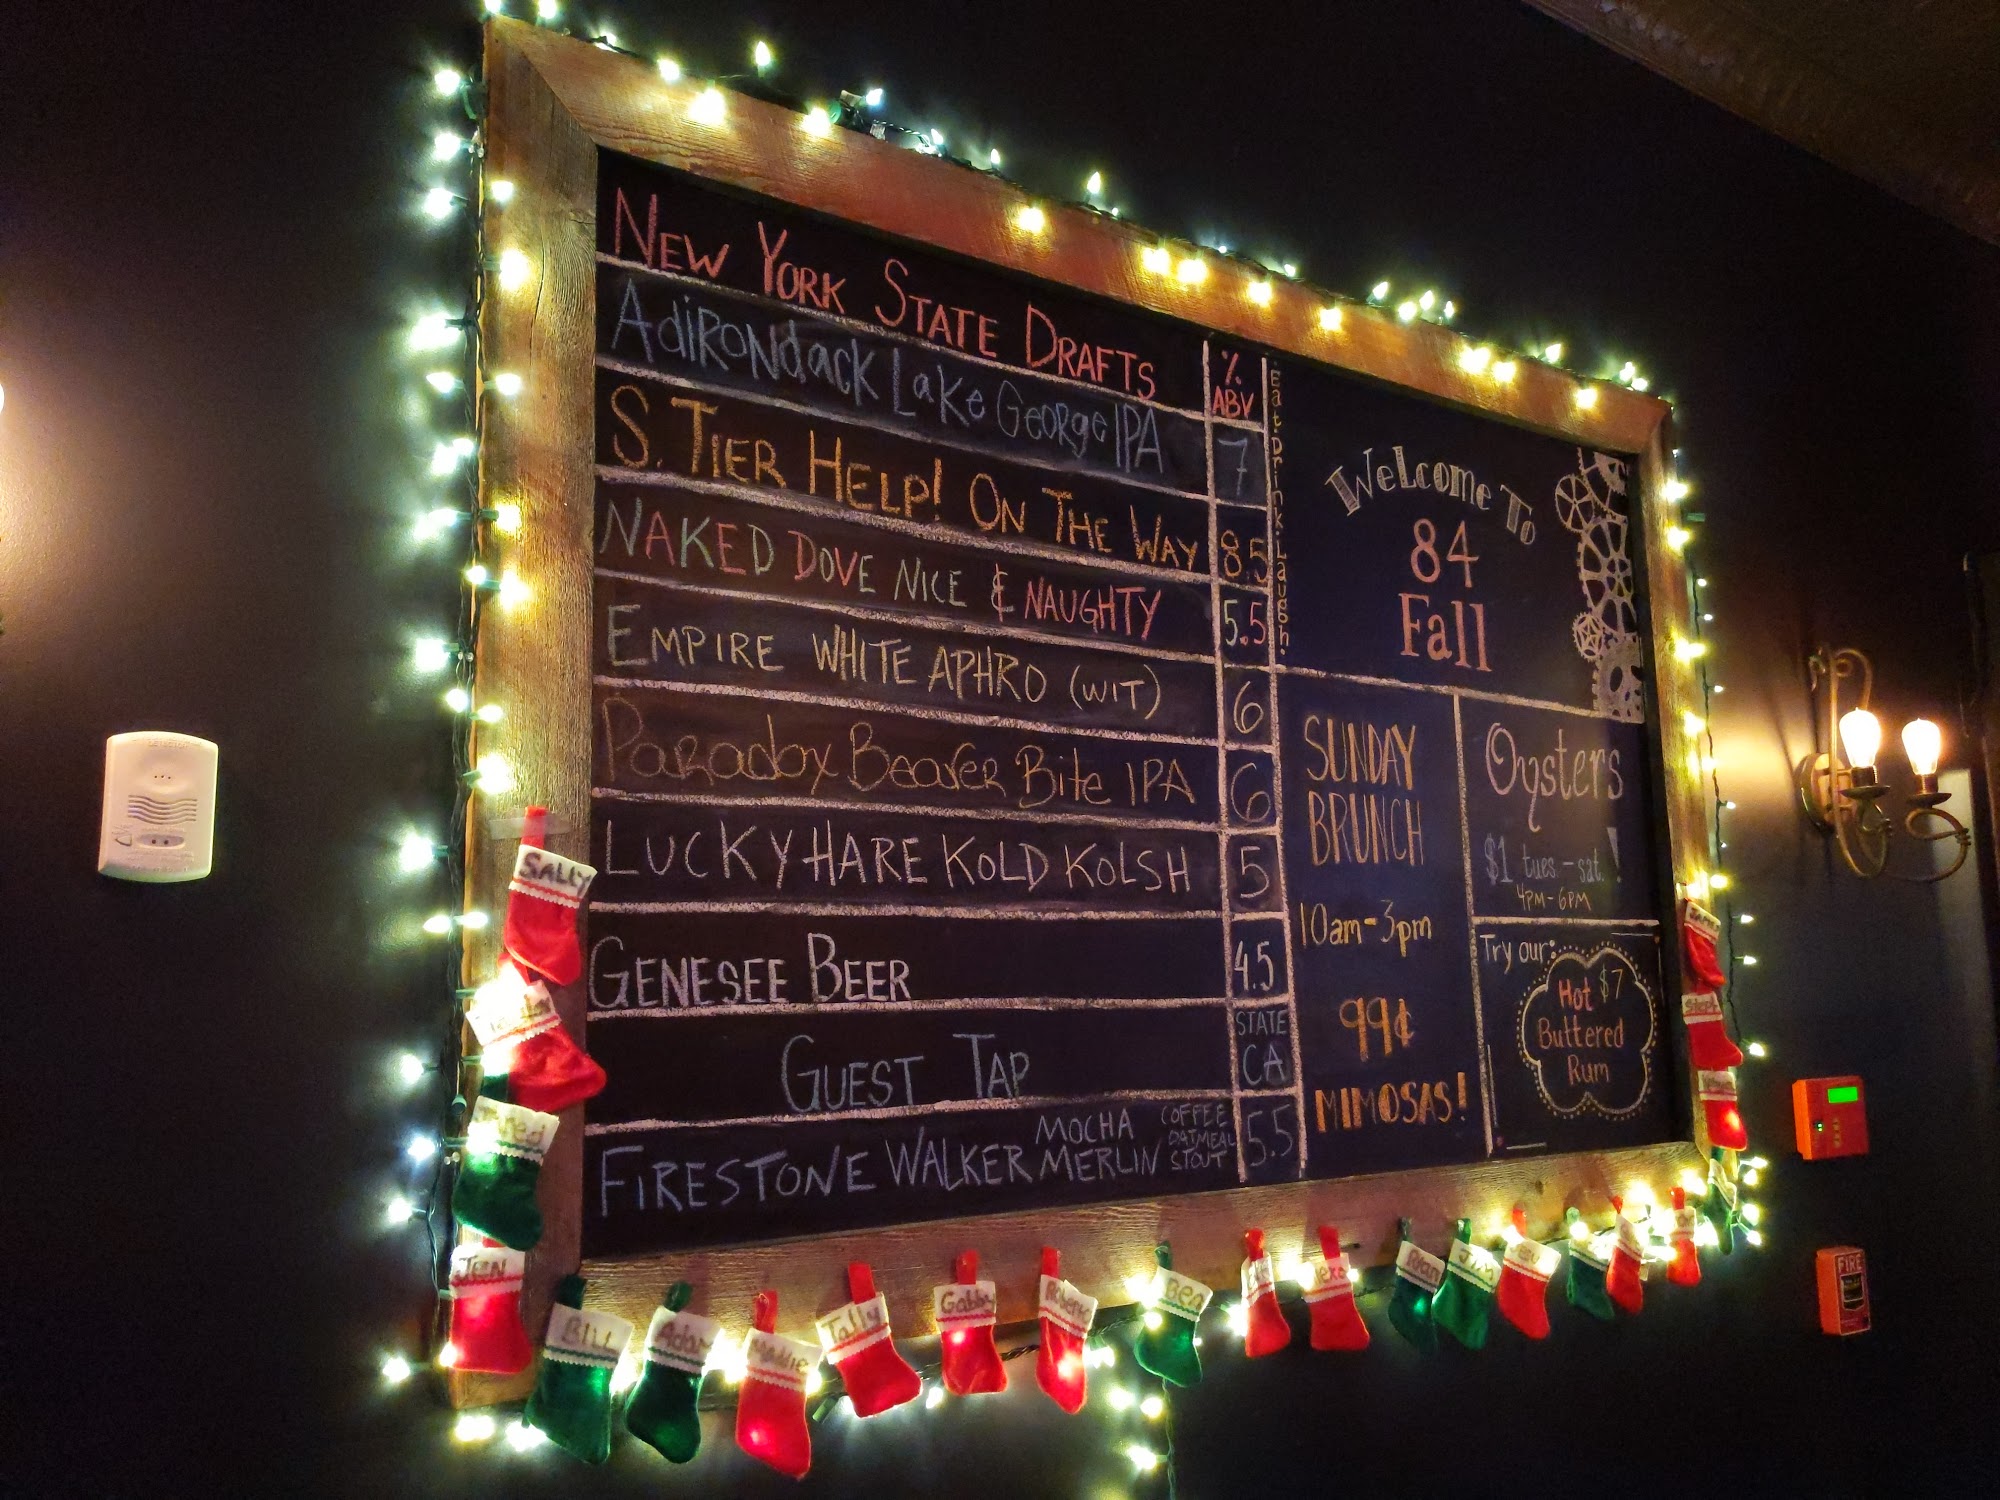 NEW YORK STATE DRAFTS
% ABV
ADIRONDACK LAKE GEORGE IPA
7
S. TIER HELP! ON THE WAY
8.5
NAKED DOVE NICE & NAUGHTY
5.5
EMPIRE WHITE APHRO (WIT)
6
Paradox Beaver Bite IPA
6
LUCKY HARE KOLD KOLSH
5
GENESEE BEER
4.5
GUEST TAP
STATE
CA
FIRESTONE WALKER MOCHA MERLIN
COFFEE
OATMEAL
STOUT
5.5
Eat.Drink.Laugh!
Welcome To
84
Fall
SUNDAY
BRUNCH
10am-3pm
99¢
MIMOSAS!
Oysters
$1 tues.-sat.!
4PM-6PM
Try our:
Hot $7
Buttered
Rum
SALLY
JEN
BILL
Adam
Maddie
Tally
Gabby
Roberto
Bea
Ryan
Jim
FIRE